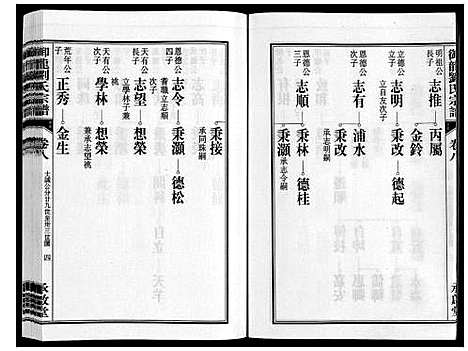 御龍劉氏宗譜
卷八
明祖公
次子
志推
丙屬
金鈴
立德公
次子
立自友次子
志明
秉改
德起
承志明嗣
恩德公
三子
志有
浦水
秉林
德桂
秉灝
承志令嗣
秉接
承同珠嗣
恩德公
四子
志令
秉灝
德松
天有公
長子
書職立志朝
志望
想榮
立學林子兼
天有公
次子
學林
想榮
兼承志望桃
荒年公
次子
正秀
金生
御龍劉氏宗譜
卷八
大誠公分廿九世至卅三世圖
四
永啟堂